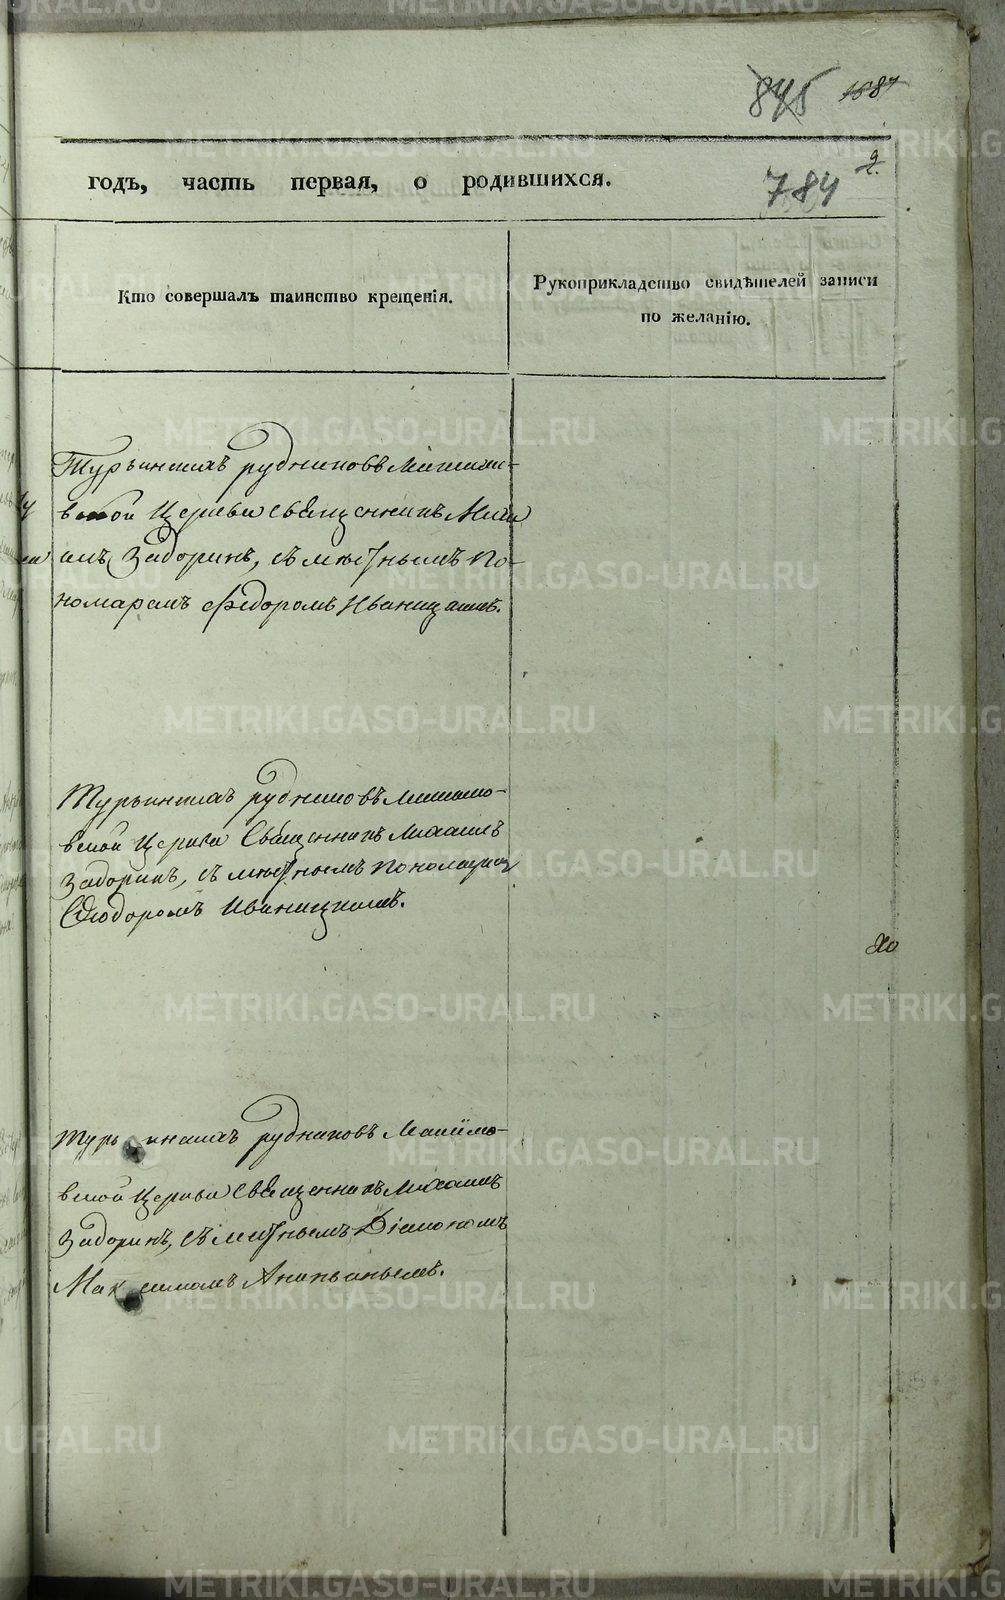 845 1687
годъ, часть первая, о родившихся.
784
Кто совершалъ таинство крещенія.
Рукоприкладство свидѣтелей записи
по желанію.
Турьинскихъ рудниковъ Максимо-
вской Церкви священникъ Миха
илъ Задоринъ, съ мѣстнымъ По-
номаремъ Федоромъ Иваницкимъ.
Турьинскихъ рудниковъ Максимо-
вской Церкви Священникъ Михаилъ
Задоринъ, съ мѣстнымъ Пономаремъ
Феодоромъ Иваницкимъ.
Турьинскихъ рудниковъ Максимо-
вской Церкви Священникъ Михаилъ
Задоринъ, съ мѣстнымъ Діакономъ
Максимомъ Ананьинымъ.
METRIKI.GASO-URAL.RU